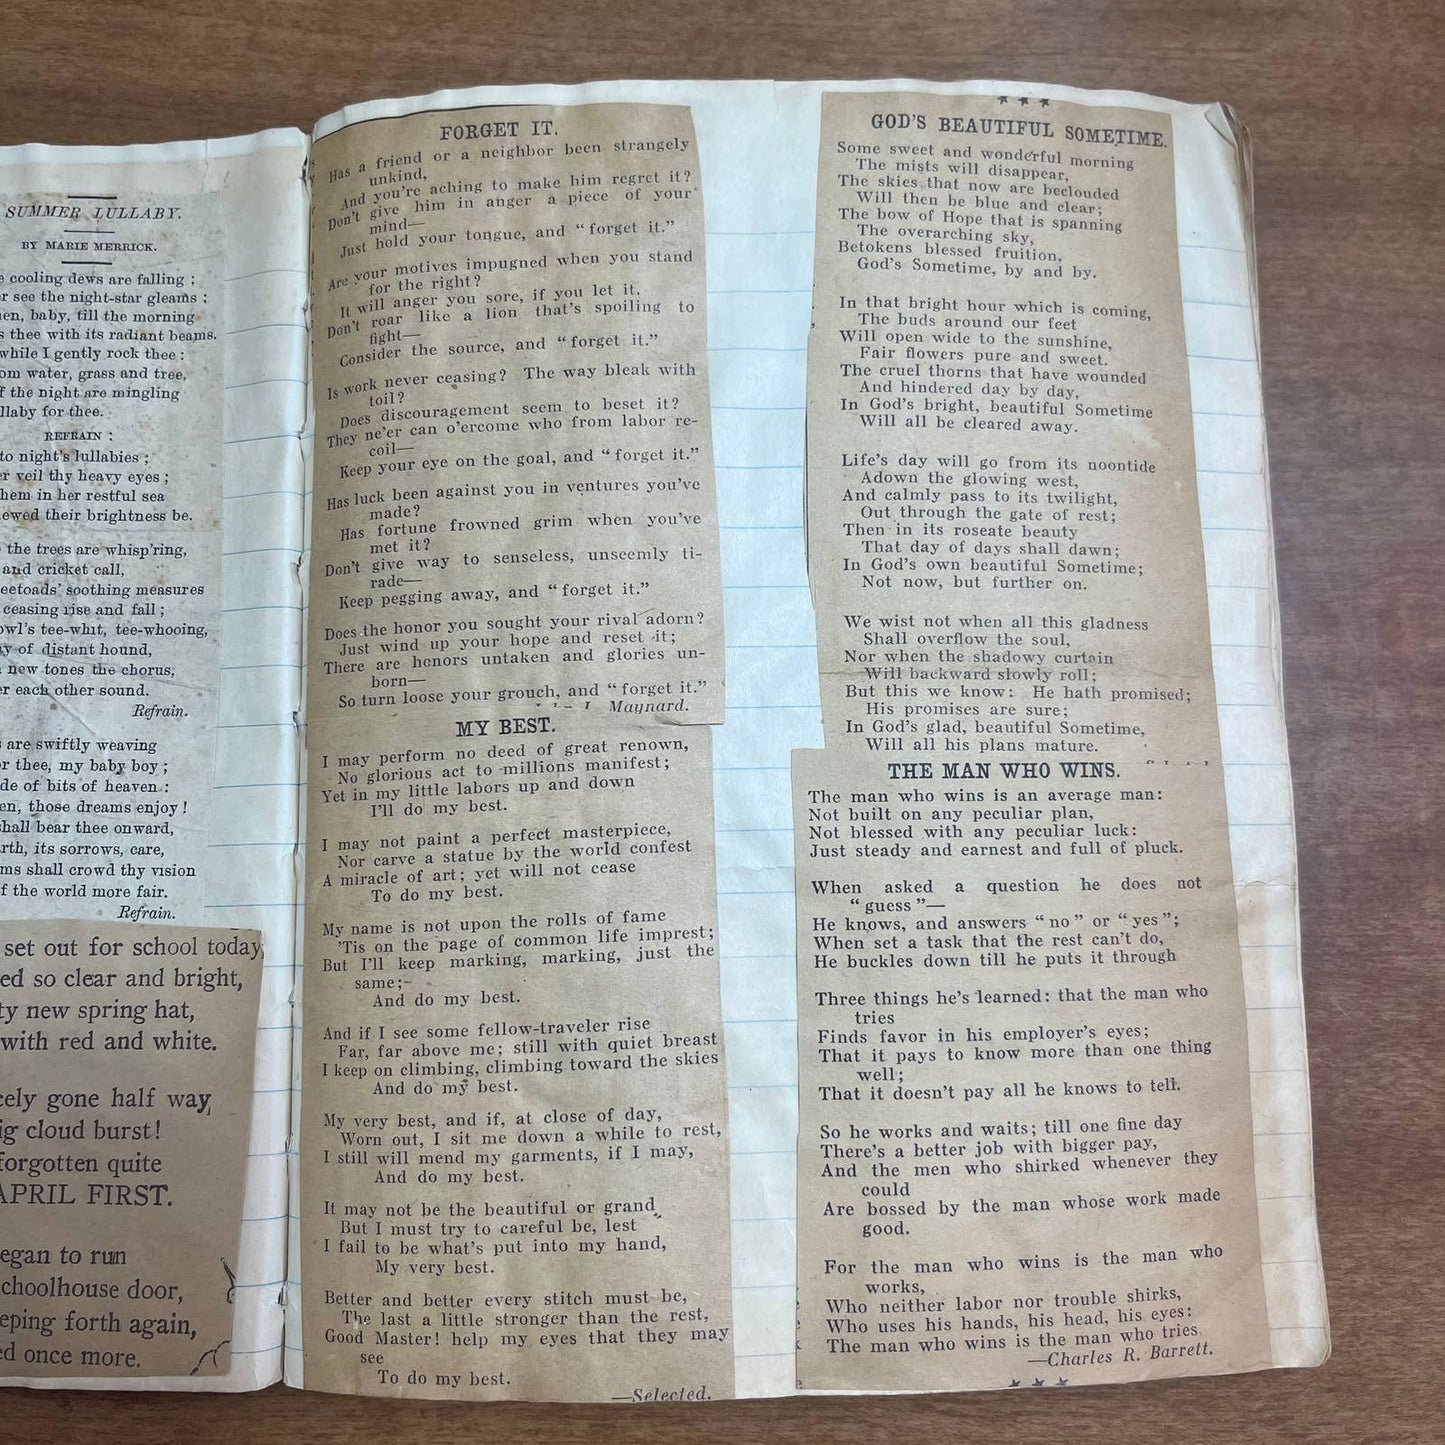 SUMMER LULLABY.
BY MARIE MERRICK.
cooling dews are falling ;
see the night-star gleams ;
baby, till the morning
thee with its radiant beams.
while I gently rock thee :
water, grass and tree,
the night are mingling
for thee.
REFRAIN :
to night's lullabies ;
veil thy heavy eyes ;
in her restful sea
their brightness be.
the trees are whisp'ring,
and cricket call,
soothing measures
ceasing rise and fall ;
tee-whit, tee-whooing,
of distant hound,
new tones the chorus,
each other sound.
Refrain.
are swiftly weaving
thee, my baby boy ;
of bits of heaven :
those dreams enjoy !
shall bear thee onward,
its sorrows, care,
shall crowd thy vision
the world more fair.
Refrain.
set out for school today,
so clear and bright,
new spring hat,
with red and white.
gone half way
cloud burst!
forgotten quite
APRIL FIRST.
to run
schoolhouse door,
forth again,
once more.
FORGET IT.
Has a friend or a neighbor been strangely
unkind,
And you're aching to make him regret it?
Don't give him in anger a piece of your
mind—
Just hold your tongue, and "forget it."
Are your motives impugned when you stand
for the right?
It will anger you sore, if you let it.
Don't roar like a lion that's spoiling to
fight—
Consider the source, and "forget it."
Is work never ceasing? The way bleak with
toil?
Does discouragement seem to beset it?
They ne'er can o'ercome who from labor re-
coil—
Keep your eye on the goal, and "forget it."
Has luck been against you in ventures you've
made?
Has fortune frowned grim when you've
met it?
Don't give way to senseless, unseemly ti-
rade—
Keep pegging away, and "forget it."
Does the honor you sought your rival adorn?
Just wind up your hope and reset it;
There are honors untaken and glories un-
born—
So turn loose your grouch, and "forget it."
Maynard.
MY BEST.
I may perform no deed of great renown,
No glorious act to millions manifest;
Yet in my little labors up and down
I'll do my best.
I may not paint a perfect masterpiece,
Nor carve a statue by the world confest
A miracle of art; yet will not cease
To do my best.
My name is not upon the rolls of fame
'Tis on the page of common life imprest;
But I'll keep marking, marking, just the
same;-
And do my best.
And if I see some fellow-traveler rise
Far, far above me; still with quiet breast
I keep on climbing, climbing toward the skies
And do my best.
My very best, and if, at close of day,
Worn out, I sit me down a while to rest,
I still will mend my garments, if I may,
And do my best.
It may not be the beautiful or grand,
But I must try to careful be, lest
I fail to be what's put into my hand,
My very best.
Better and better every stitch must be,
The last a little stronger than the rest,
Good Master! help my eyes that they may
see
To do my best.
—Selected.
GOD'S BEAUTIFUL SOMETIME.
Some sweet and wonderful morning
The mists will disappear,
The skies that now are beclouded
Will then be blue and clear;
The bow of Hope that is spanning
The overarching sky,
Betokens blessed fruition,
God's Sometime, by and by.
In that bright hour which is coming,
The buds around our feet
Will open wide to the sunshine,
Fair flowers pure and sweet.
The cruel thorns that have wounded
And hindered day by day,
In God's bright, beautiful Sometime
Will all be cleared away.
Life's day will go from its noontide
Adown the glowing west,
And calmly pass to its twilight,
Out through the gate of rest;
Then in its roseate beauty
That day of days shall dawn;
In God's own beautiful Sometime;
Not now, but further on.
We wist not when all this gladness
Shall overflow the soul,
Nor when the shadowy curtain
Will backward slowly roll;
But this we know: He hath promised;
His promises are sure;
In God's glad, beautiful Sometime,
Will all his plans mature.
THE MAN WHO WINS.
The man who wins is an average man:
Not built on any peculiar plan,
Not blessed with any peculiar luck:
Just steady and earnest and full of pluck.
When asked a question he does not
"guess"—
He knows, and answers "no" or "yes";
When set a task that the rest can't do,
He buckles down till he puts it through
Three things he's learned: that the man who
tries
Finds favor in his employer's eyes;
That it pays to know more than one thing
well;
That it doesn't pay all he knows to tell.
So he works and waits; till one fine day
There's a better job with bigger pay,
And the men who shirked whenever they
could
Are bossed by the man whose work made
good.
For the man who wins is the man who
works,
Who neither labor nor trouble shirks,
Who uses his hands, his head, his eyes:
The man who wins is the man who tries
—Charles R. Barrett.